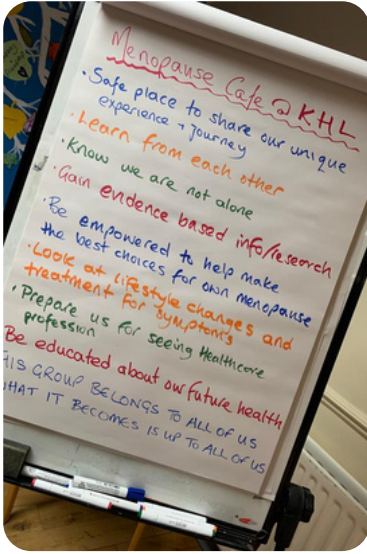 Menopause Cafe @ KHL
· Safe place to share our unique
experience + journey
· Learn from each other
· Know we are not alone
· Gain evidence based info/research
· Be empowered to help make
the best choices for own menopause
· Look at lifestyle changes and
treatment for symptoms
· Prepare us for seeing Healthcare
profession
Be educated about our future health
THIS GROUP BELONGS TO ALL OF US
WHAT IT BECOMES IS UP TO ALL OF US